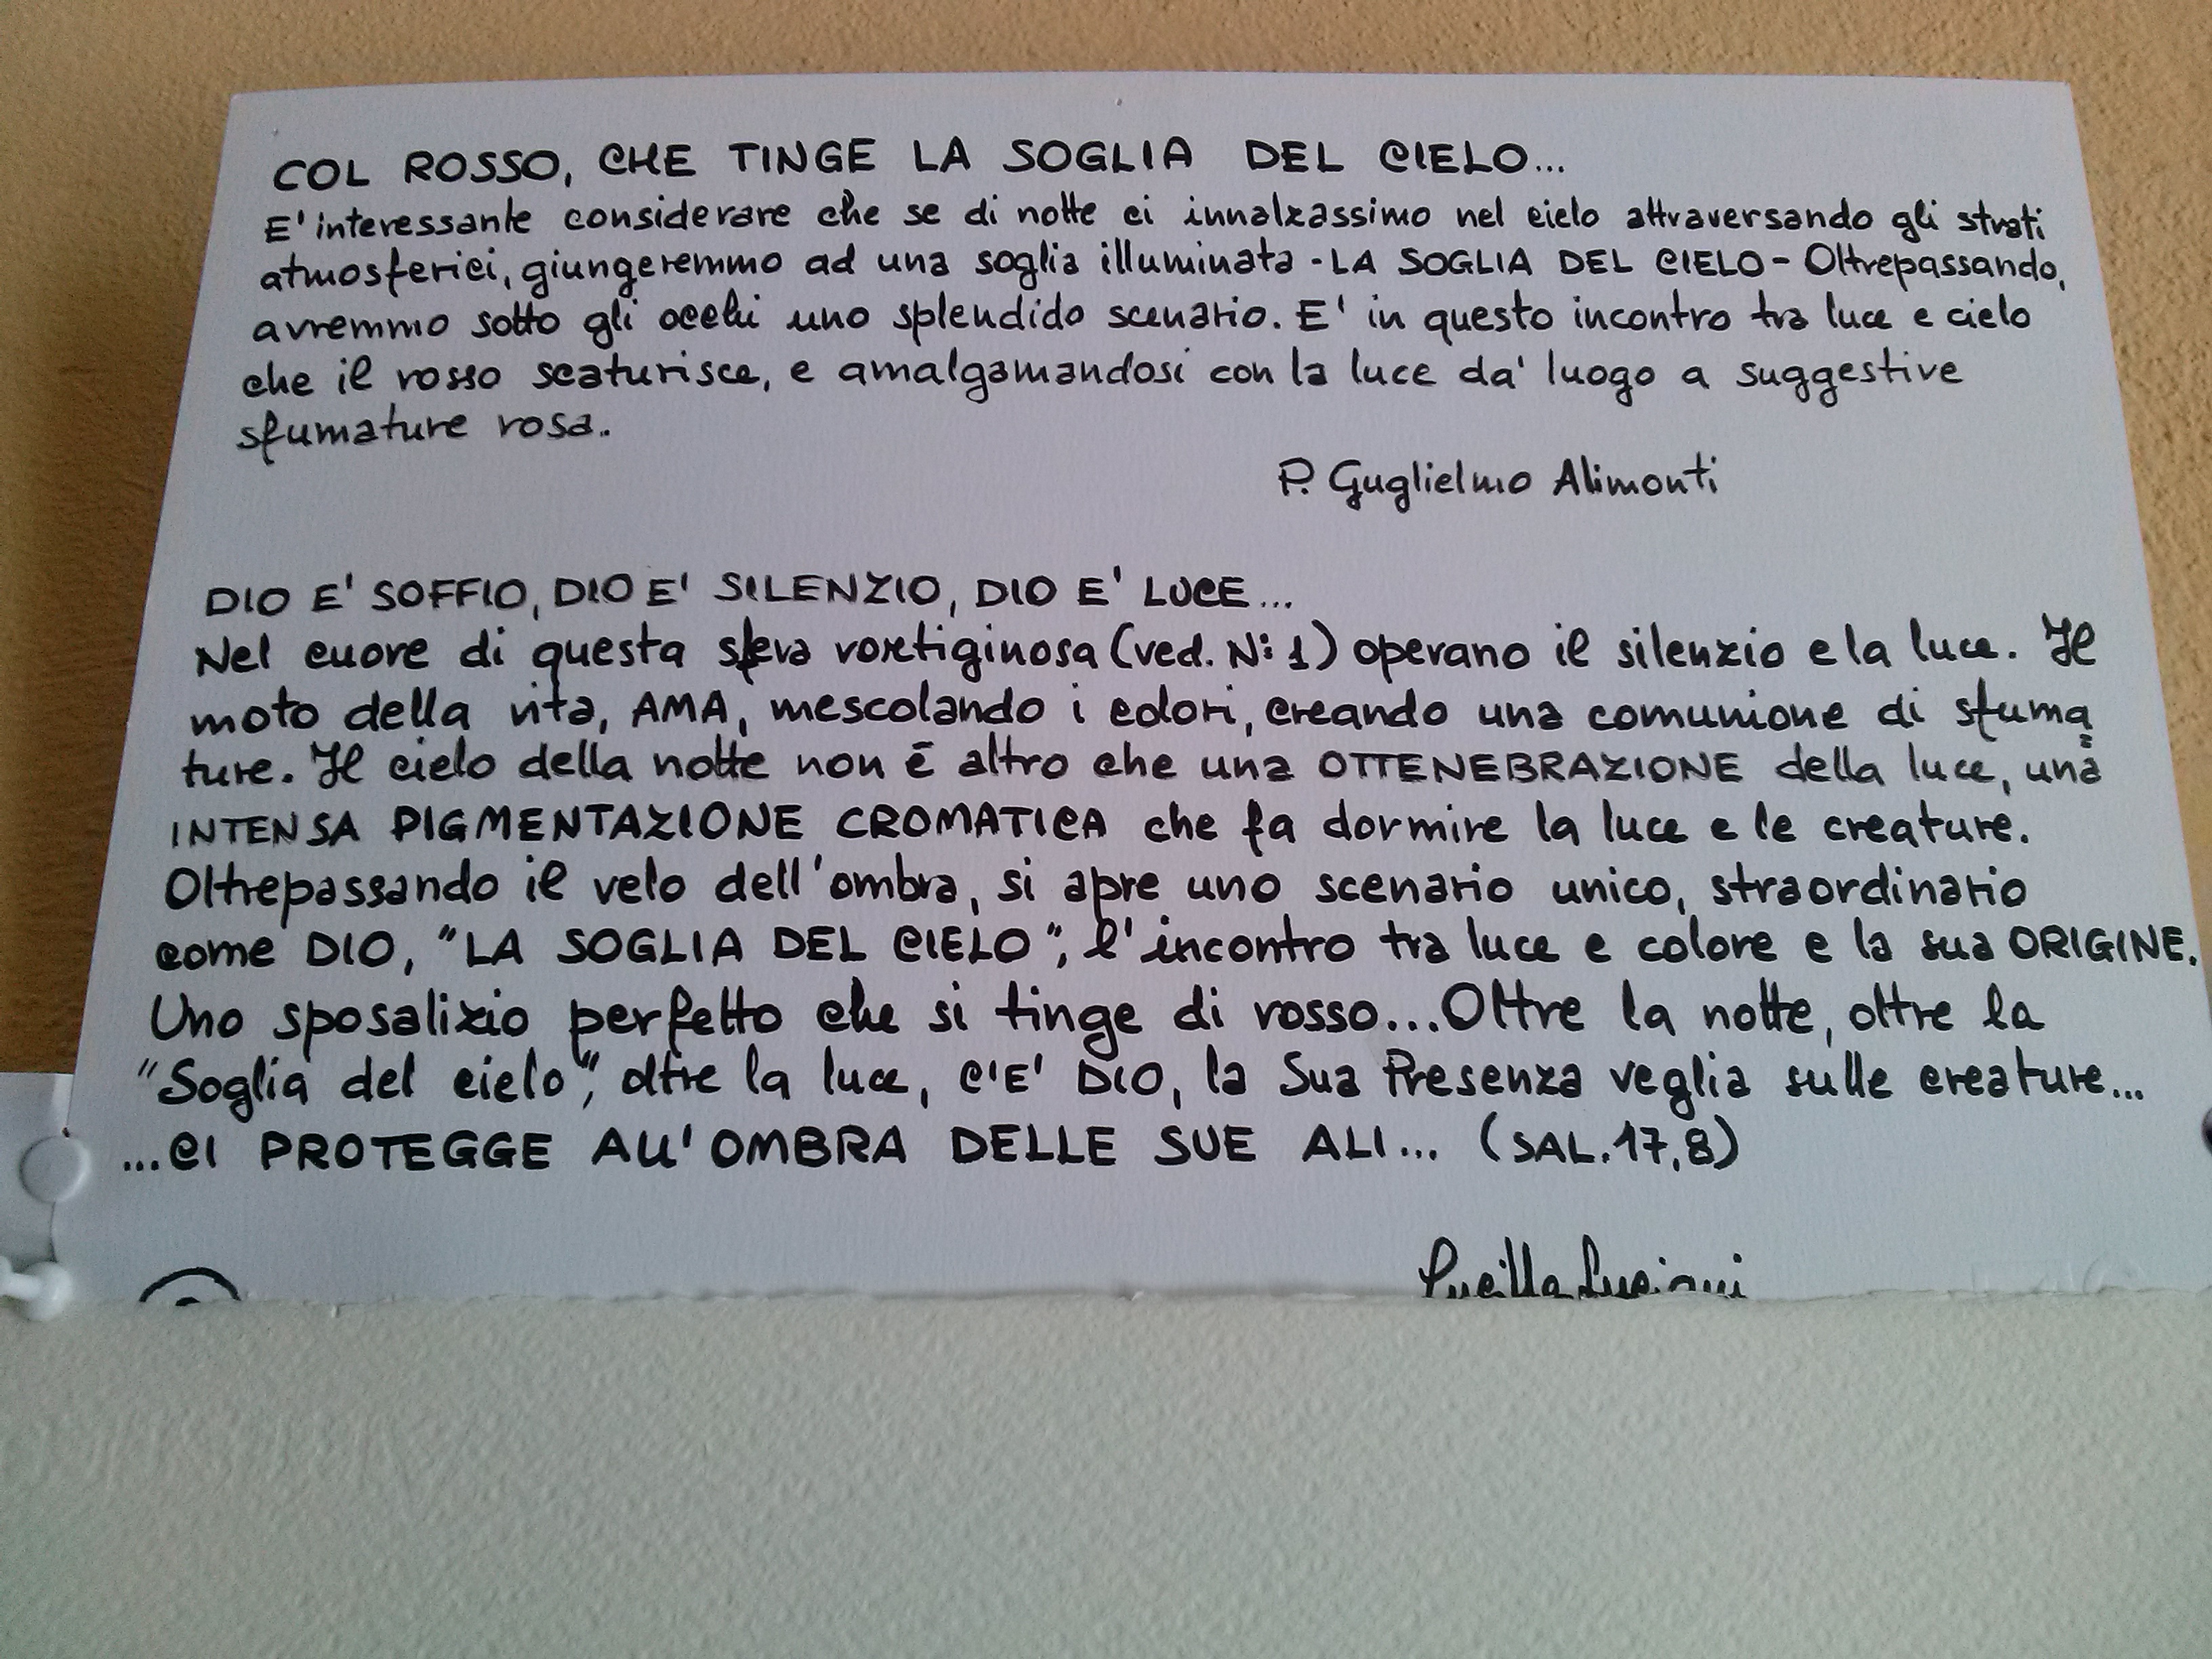 COL ROSSO, CHE TINGE LA SOGLIA DEL CIELO...
E' interessante considerare che se di notte ci innalzassimo nel cielo attraversando gli strati
atmosferici, giungeremmo ad una soglia illuminata - LA SOGLIA DEL CIELO - Oltrepassando,
avremmo sotto gli occhi uno splendido scenario. E' in questo incontro tra luce e cielo
che il rosso scaturisce, e amalgamandosi con la luce da' luogo a suggestive
sfumature rosa.
P. Guglielmo Alimonti
DIO E' SOFFIO, DIO E' SILENZIO, DIO E' LUCE...
Nel cuore di questa sfera vortiginosa (ved. N: 1) operano il silenzio e la luce. Il
moto della vita, AMA, mescolando i colori, creando una comunione di sfuma
ture. Il cielo della notte non è altro che una OTTENEBRAZIONE della luce, una
INTENSA PIGMENTAZIONE CROMATICA che fa dormire la luce e le creature.
Oltrepassando il velo dell'ombra, si apre uno scenario unico, straordinario
come DIO, "LA SOGLIA DEL CIELO", l'incontro tra luce e colore e la sua ORIGINE.
Uno sposalizio perfetto che si tinge di rosso... Oltre la notte, oltre la
"Soglia del cielo", oltre la luce, C'E' DIO, la Sua Presenza veglia sulle creature...
...CI PROTEGGE ALL'OMBRA DELLE SUE ALI... (SAL. 17,8)
Lucilla Luciani